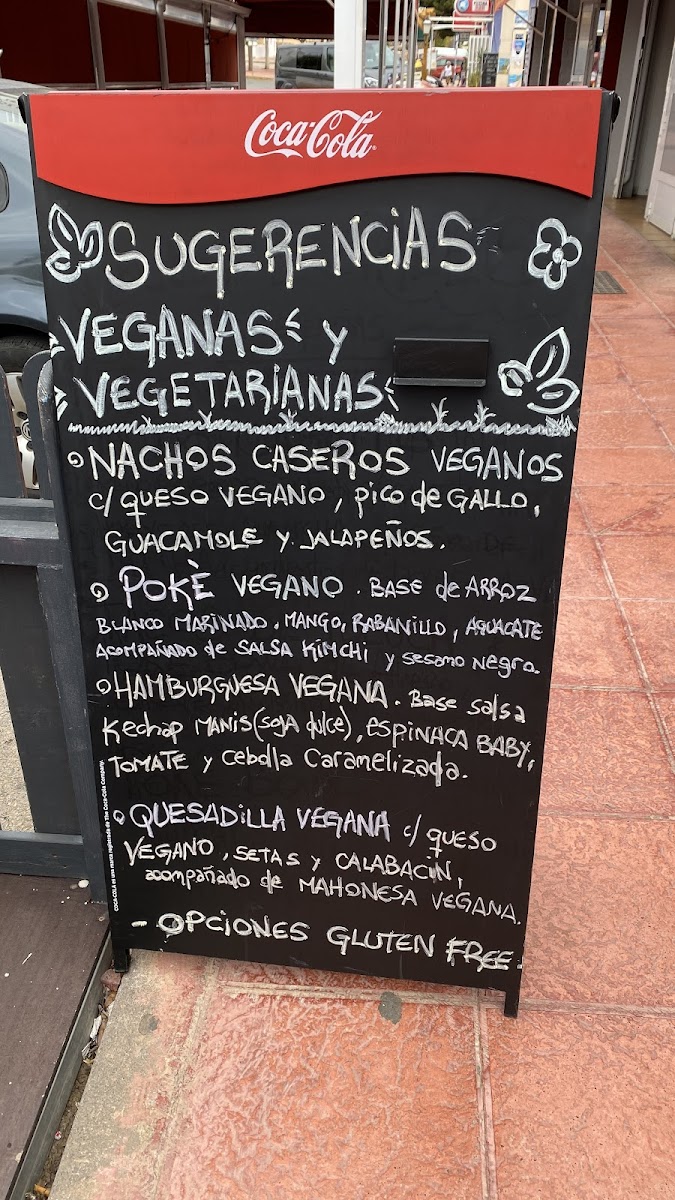 Coca-Cola
SUGERENCIAS
VEGANAS y
VEGETARIANAS
NACHOS CASEROS VEGANOS
c/ queso VEGANO, pico de GALLO,
GUACAMOLE y JALAPEÑOS.
POKÈ VEGANO. BASE de ARROZ
BLANCO MARINADO, MANGO, RABANILLO, AGUACATE
ACOMPAÑADO de SALSA KIMCHI y sesamo negro.
HAMBURGUESA VEGANA. Base salsa
Kechap MANIS (soja dulce), ESPINACA BABY,
TOMATE y cebolla Caramelizada.
QUESADILLA VEGANA c/ queso
VEGANO, SETAS y CALABACIN,
acompañado de MAHONESA VEGANA.
- OPCIONES GLUTEN FREE -
COCA-COLA es una marca registrada de The Coca-Cola Company.